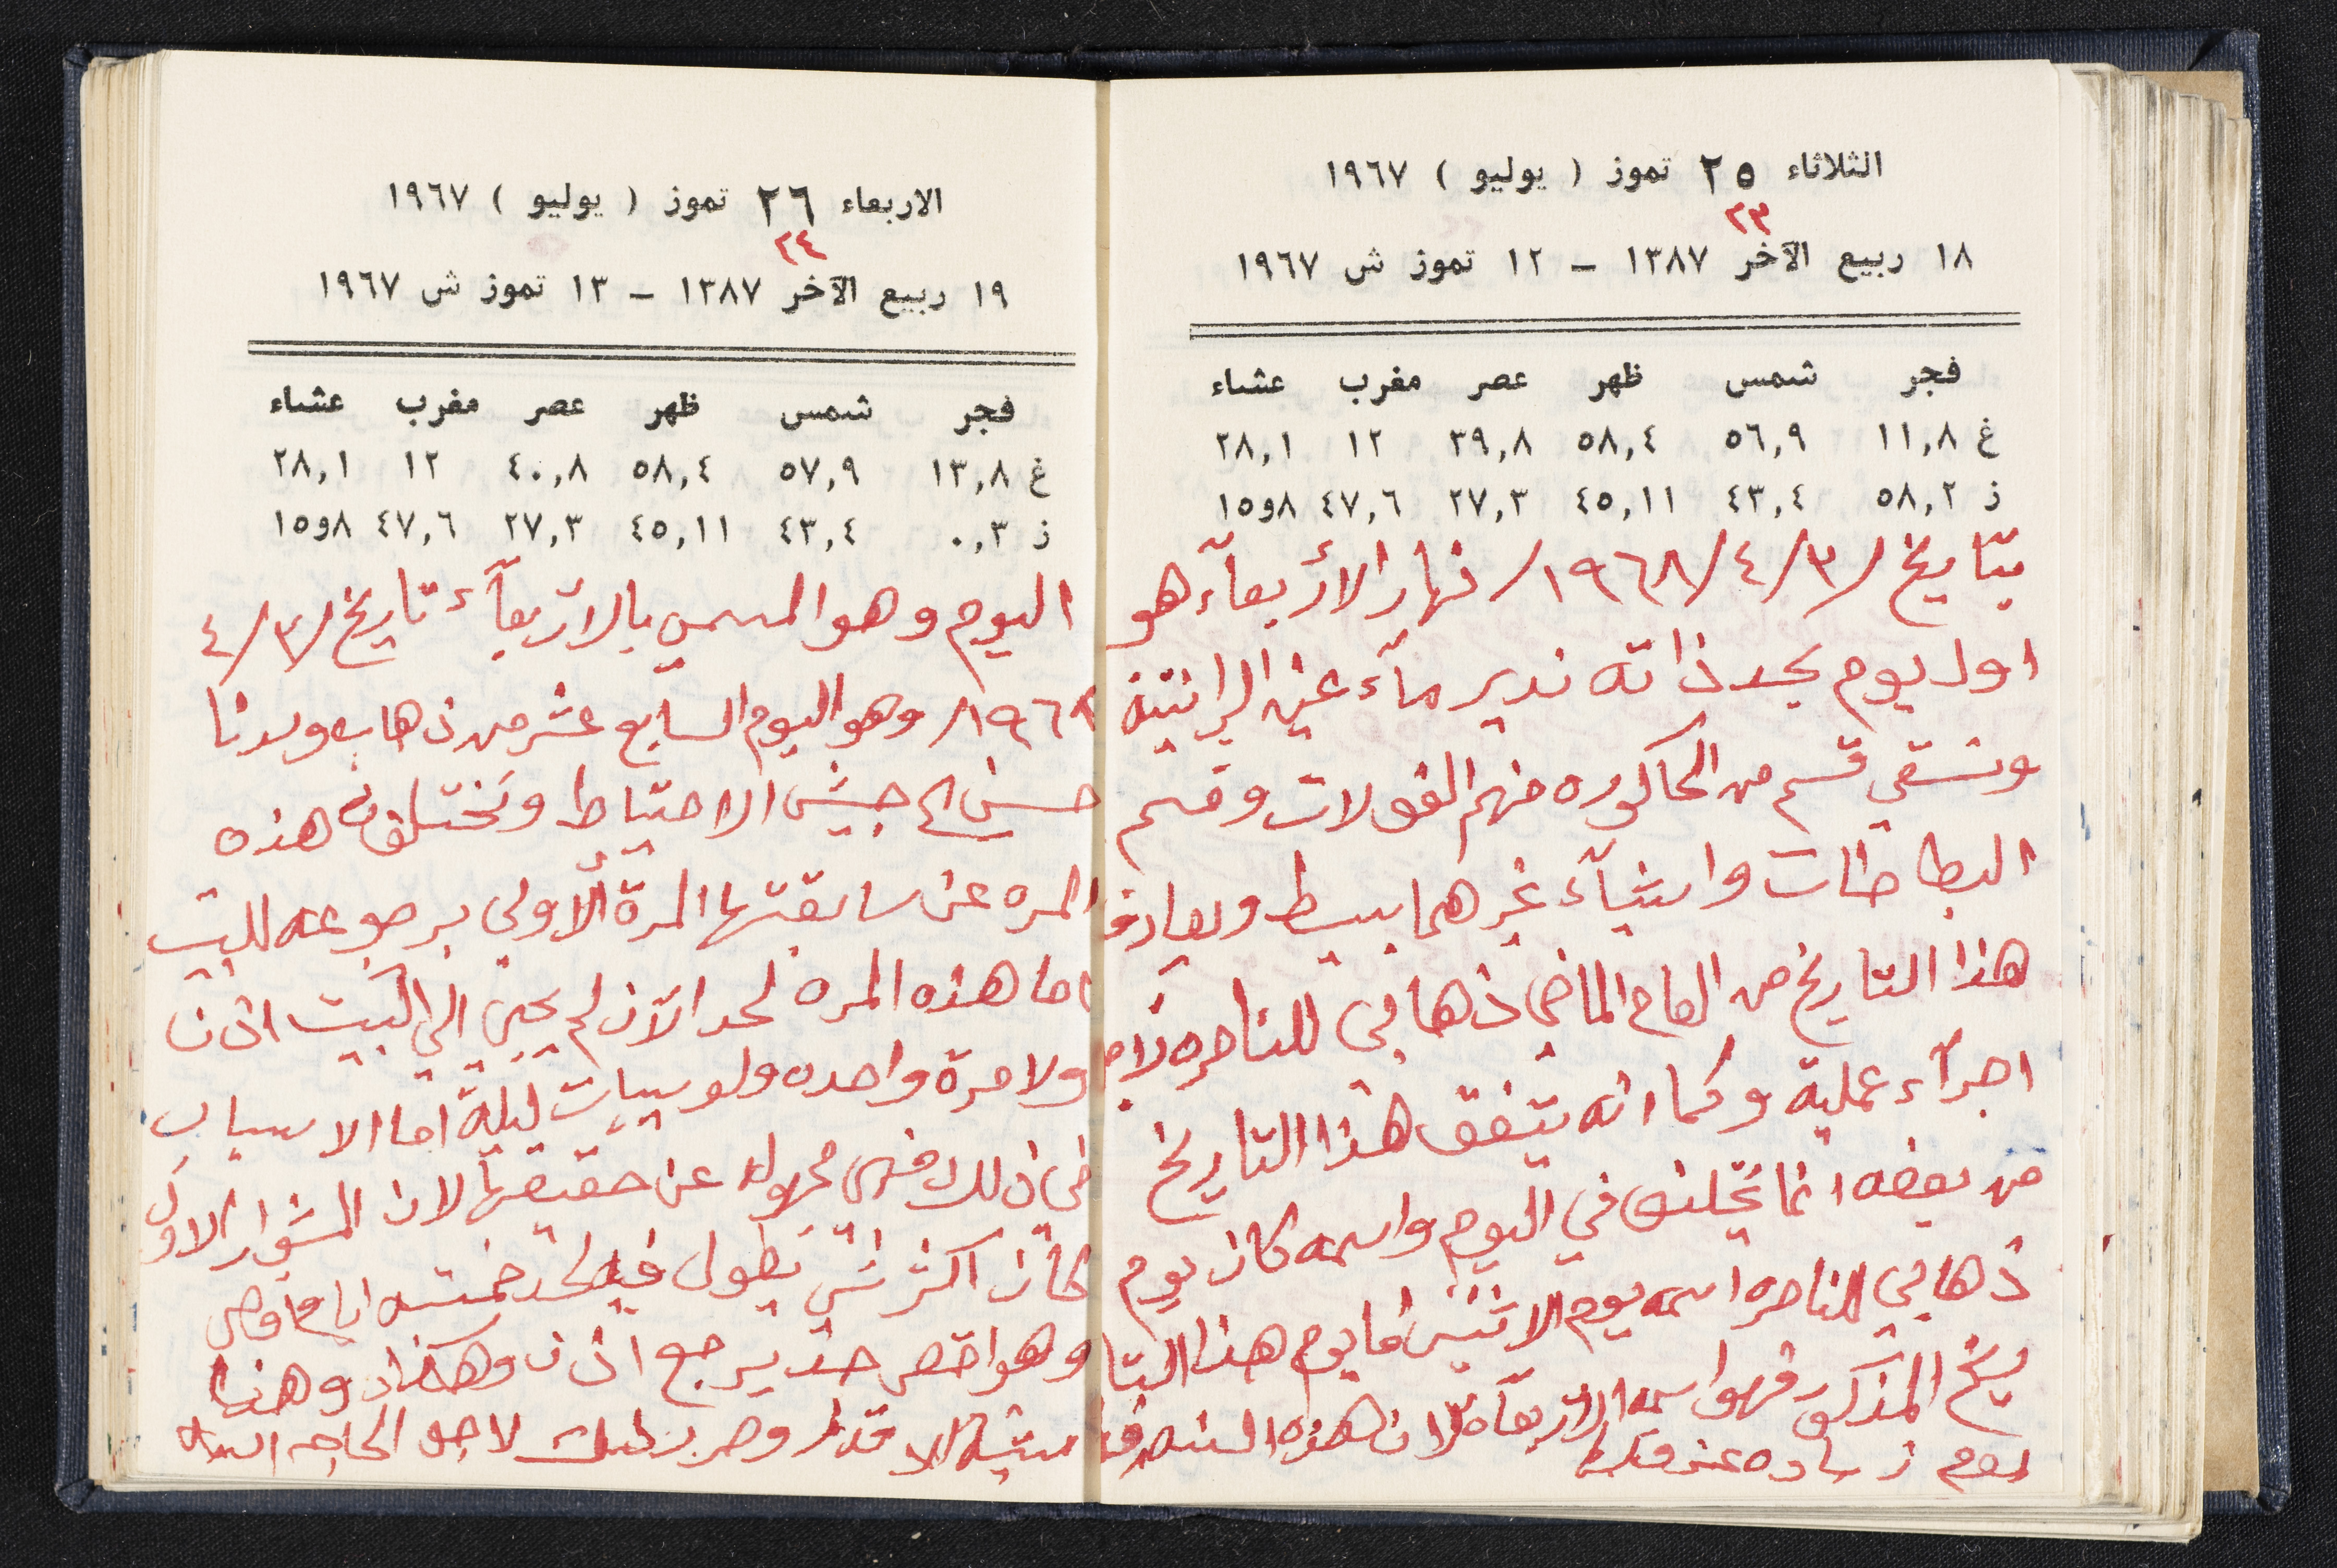 الثلاثاء ٢٥ تموز ( يوليو ) ١٩٦٧
٢٣
١٨ ربيع الآخر ١٣٨٧ – ١٢ تموز ش ١٩٦٧
فجر شمس ظهر عصر مغرب عشاء
غ ١١,٨ ٥٦,٩ ٥٨,٤ ٣٩,٨ ١٢ ٢٨,١
ز ٥٨,٢ ٤٣,٤ ٤٥,١١ ٢٧,٣ ٤٧,٦ ٨و١٥
بتاريخ /٣/٤/١٩٦٨/ نهار الأربعآء هو
اول يوم بحد ذاته ندير مآء عين الرانتية
ونسقي قسم من الحاكوره منهم الفولات وقسم
البطاطات واشيآء غيرهما بسيط ويصادف
هذا التاريخ من العام الماضي ذهابي للناصره لاجل
اجرآء عملية وكما انه يتفق هذا التاريخ
من بعضه انما يختلف في اليوم واسمه كان يوم
ذهابي للناصره اسمه يوم الاثنين اما يوم هذا التا
ريخ المذكور فهو اسمه الاربعآء لان هذه السنه
يوم زياده عن
الاربعاء ٢٦ تموز ( يوليو ) ١٩٦٧
٢٤
١٩ ربيع الآخر ١٣٨٧ – ١٣ تموز ش ١٩٦٧
فجر شمس ظهر عصر مغرب عشاء
غ ١٣,٨ ٥٧,٩ ٥٨,٤ ٤٠,٨ ١٢ ٢٨,١
ز ٠,٣ ٤٣,٤ ٤٥,١١ ٢٧,٣ ٤٧,٦ ٨و١٥
اليوم وهو المسمي بالاربعآء تاريخ /٣/٤
١٩٦٨/ وهو اليوم السابع عشر من ذهاب ولدنا
حسين الى جيش الاحتياط وتختلف هذه
المره عن سابقتها المرة الأولى برجوعه للبيت
اما هذه المره لحد الآن لم يجئ الي البيت اذن
ولا مرة واحده ولو يبات ليلة اما الاسباب
في ذلك فهى مجهوله عن حقيقتها لان المشوار الاول
كان اكثر شي يطول فيه لحد خمسه ايام
وهو يرجع اذن وهكذا وهذا
مشيئة الاقدار لاجل الحاجه